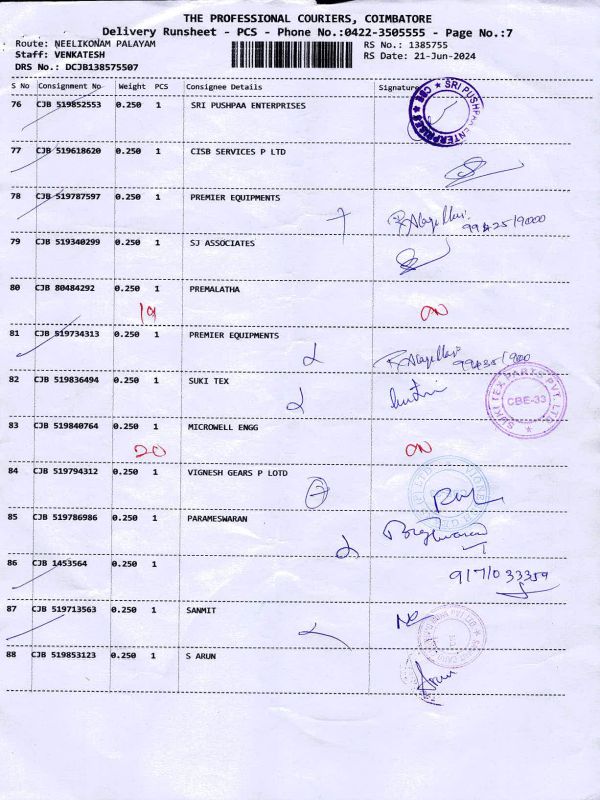 THE PROFESSIONAL COURIERS, COIMBATORE
Delivery Runsheet - PCS - Phone No.:0422-3505555 - Page No.:7
Route: NEELIKONAM PALAYAM RS No.: 1385755
Staff: VENKATESH RS Date: 21-Jun-2024
DRS No.: DCJB138575507
S No Consignment No Weight PCS Consignee Details Signature
76 CJB 519852553 0.250 1 SRI PUSHPAA ENTERPRISES
SRI PUSHPAA ENTERPRISES CBE
77 CJB 519618620 0.250 1 CISB SERVICES P LTD
78 CJB 519787597 0.250 1 PREMIER EQUIPMENTS
79 CJB 519340299 0.250 1 SJ ASSOCIATES
80 CJB 80484292 0.250 1 PREMALATHA
19 ON
81 CJB 519734313 0.250 1 PREMIER EQUIPMENTS
82 CJB 519836494 0.250 1 SUKI TEX
SUKI TEX PARKS PVT. LTD. CBE-33
83 CJB 519840764 0.250 1 MICROWELL ENGG
20 ON
84 CJB 519794312 0.250 1 VIGNESH GEARS P LOTD
85 CJB 519786986 0.250 1 PARAMESWARAN
86 CJB 1453564 0.250 1
9171033359
87 CJB 519713563 0.250 1 SANMIT
88 CJB 519853123 0.250 1 S ARUN
Arun